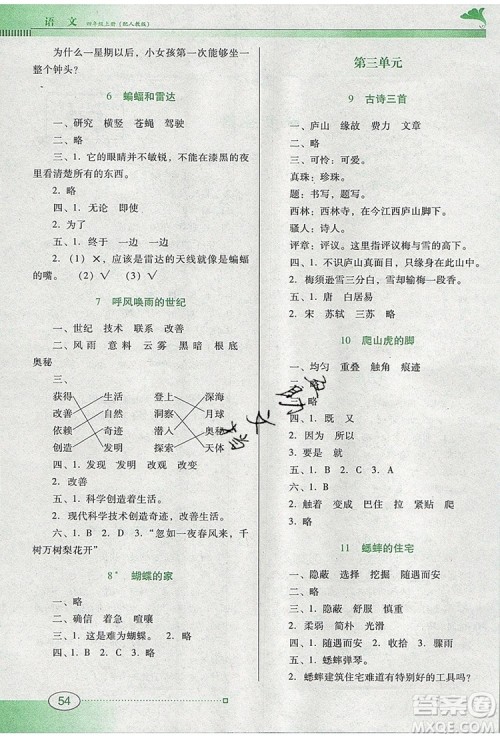 语 文 四年级上册（配人教版）
为什么一星期后，小女孩第一次能够坐一
整个钟头？
6 蝙蝠和雷达
一、研究 横竖 苍蝇 驾驶
二、略
三、1. 它的眼睛并不敏锐，能在漆黑的夜
里看清楚所有的东西。
2. 略
四、1. 无论 即使
2. 为了
五、1. 终于 一边 一边
2.（1）×，应该是雷达的天线就像是蝙蝠
的嘴。（2）√ （3）√
7 呼风唤雨的世纪
一、世纪 技术 联系 改善
二、风雨 意料 云雾 潜力 程度
奥秘
三、
获得 生活 登上 深海
改善 自然 洞察 月球
依赖 奇迹 潜入 奥秘
创造 发明 探索 天体
四、1. 发现 发明 改观 改变
2. 改善
五、1. 科学创造着生活。
2. 现代科学技术创造奇迹，改善生活。
六、1. B 2. C 3. “忽如一夜春风来，千
树万树梨花开”
8* 蝴蝶的家
一、略
二、确信 着急 喧嚷
三、1. 这是难为蝴蝶。 2. 略
四、略
54
第三单元
9 古诗三首
一、庐山 缘故 费力 文章
二、略
三、可怜：可爱。
真珠：珍珠。
题：书写，题写。
西林：西林寺，在今江西庐山脚下。
骚人：诗人。
评章：评议。这里指评议梅与雪的高下。
四、1. 不识庐山真面目，只缘身在此山中。
2. 梅须逊雪三分白，雪却输梅一段香。
五、1. D 2. A 3. B 4. C
2. 宋 苏轼 宋 卢钺
10 爬山虎的脚
一、均匀 重叠 触角 痕迹
二、略
三、略
四、1. 又
2. 因为 所以
3. 要是 就
五、1. B 2. C 3. A
六、1. B
2. 触着 变成 巴住 拉 紧贴
3. C
11 蟋蟀的住宅
一、隐蔽 选择 挖掘 搜索
二、略
三、1. 隐蔽 舒服 专制 慎重
2. 柔弱 简朴 光滑
四、1. 随遇而安 2. 收拾 3. 骤雨
五、1. 随遇而安
2. 蟋蟀弹琴。
3. 蟋蟀建筑住宅难道有特别好的工具吗？